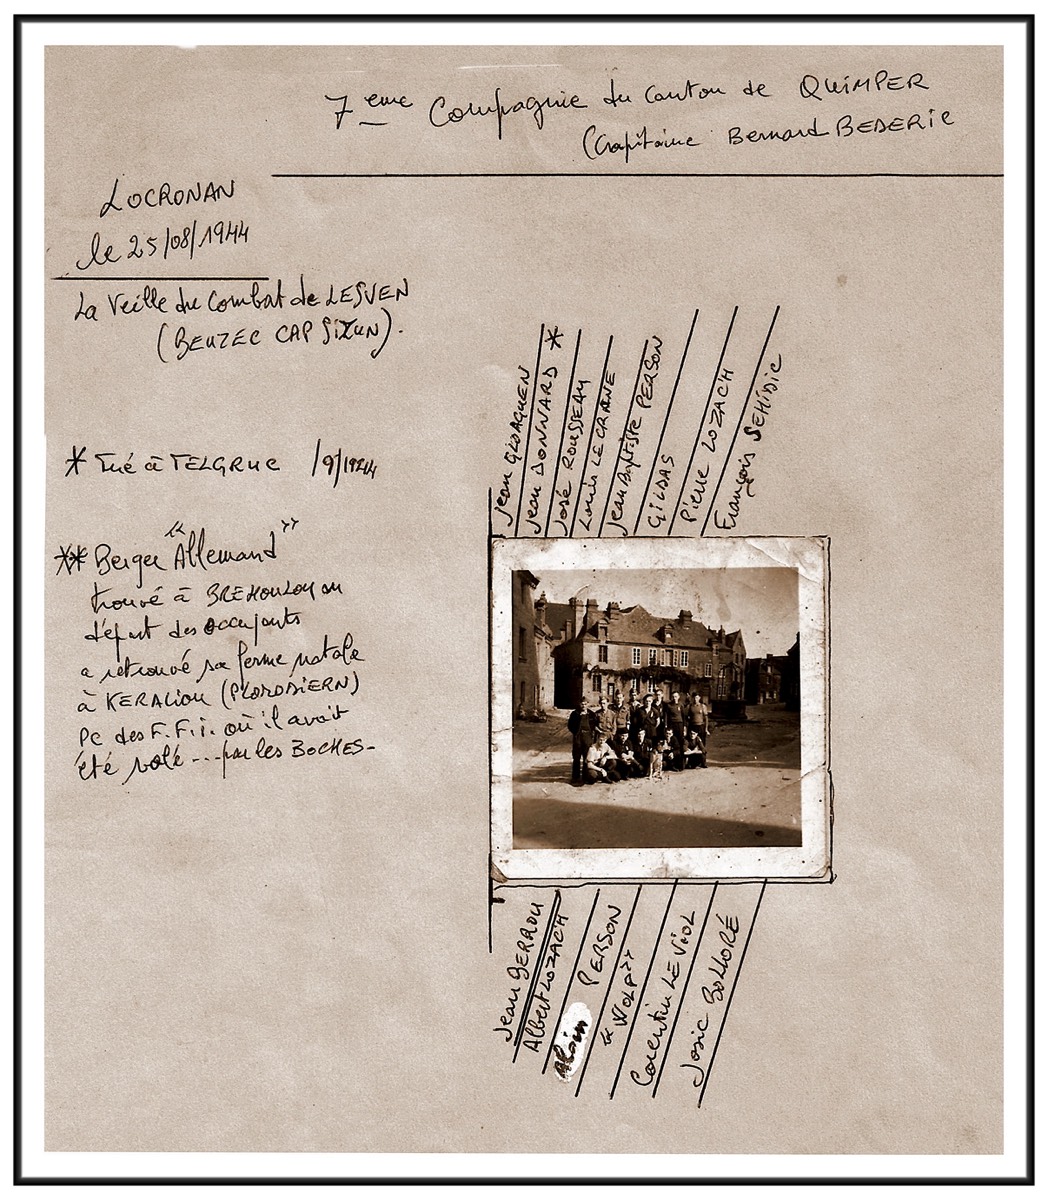 7eme Compagnie du Canton de QUIMPER
(Capitaine Bernard BEDERIC
LOCRONAN
le 25/08/1944
La Veille du Combat de LESVEN
(BEUZEC CAP SIZUN).
* Tué à TELGRUC /9/1944
** Berger "Allemand"
trouvé à BREHOULOU au
départ des occupants
a retrouvé sa ferme natale
à KERALIOU (PLOMODIERN)
PC des F.F.i. où il avait
été volé ... par les BOCHES-
Jean GLOAGUEN
Jean DONNARD *
José ROUSSEAU
Louis LE GRANE
Jean Baptiste PERSON
GILDAS
Pierre LOZAC'H
François SEHIDIC
Jean BERROU
Albert LOZAC'H
Alain PERSON
"WOLF"
Corentin LE VIOL
Josic BOLLORÉ